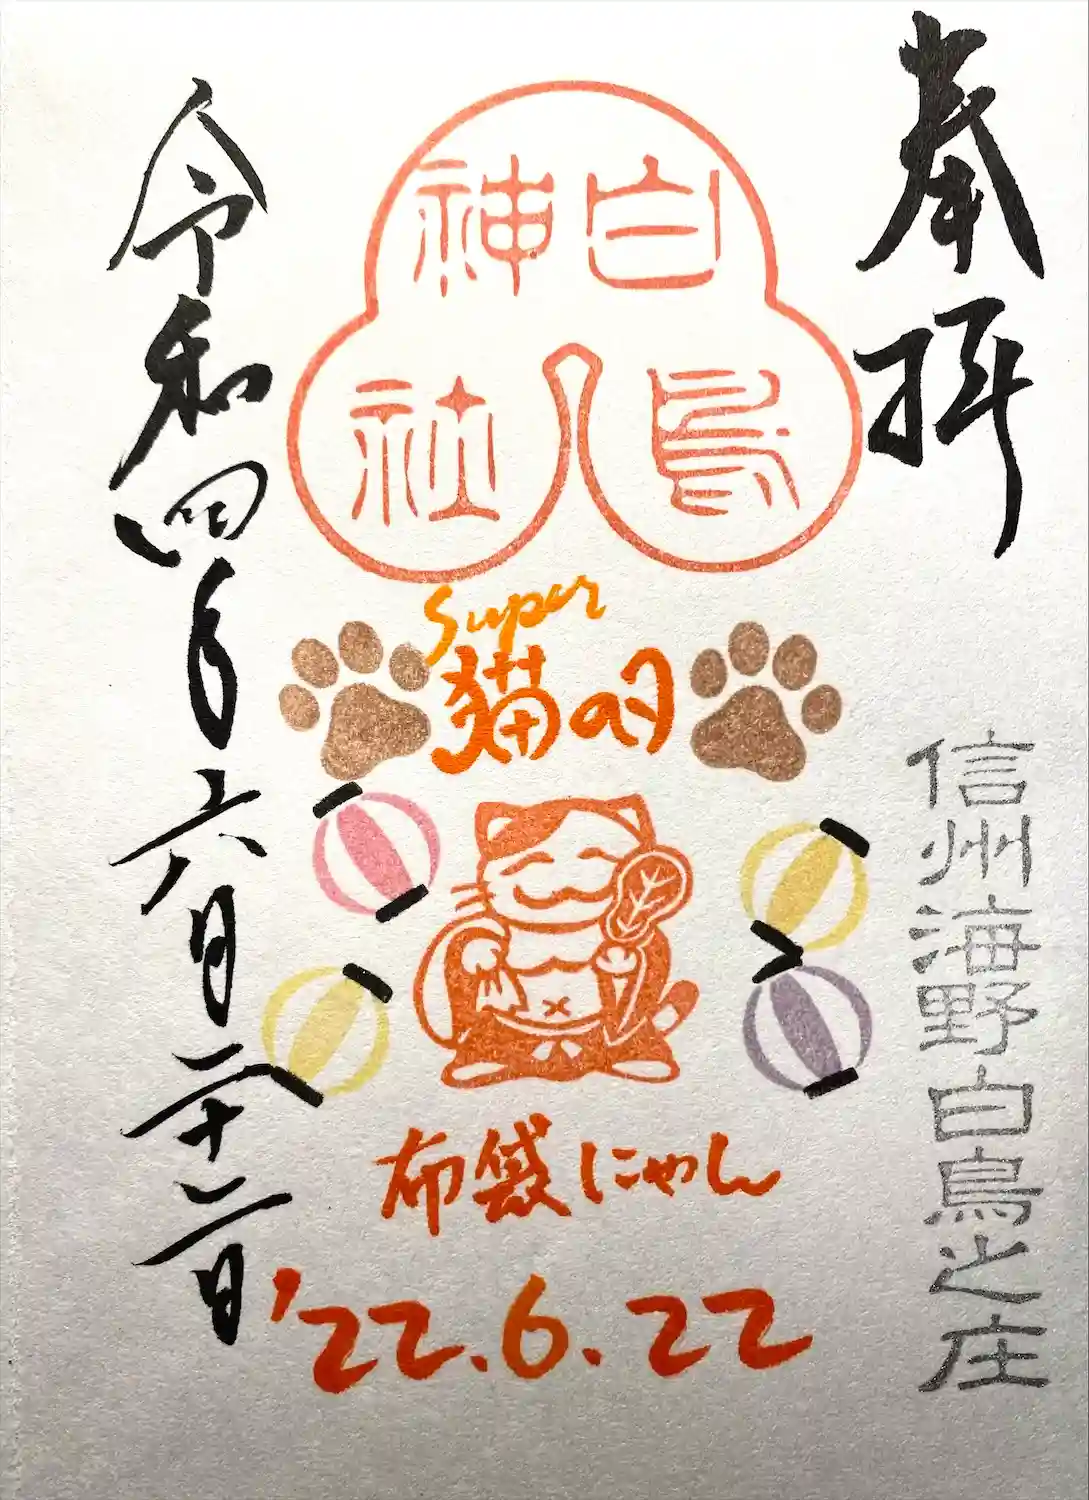 奉拝
白鳥
神社
Super
猫の日
布袋にゃん
'22.6.22
信州海野白鳥之庄
令和四年六月二十二日